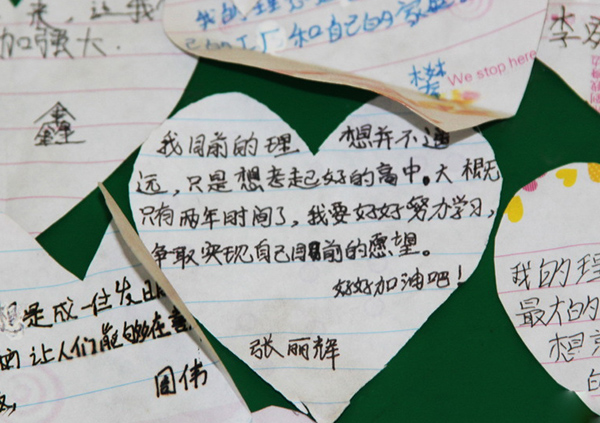 来，这
加强大.
鑫
我的理
和自己的家
樊
We stop here
李
我目前的理想并不遥
远，只是想考起好的高中。大概
只有两年时间了，我要好好努力学习，
争取实现自己目前的愿望。
好好加油吧！
张丽辉
想是成一位发明
让人们能够在
周伟
我的理
最大的
想
的